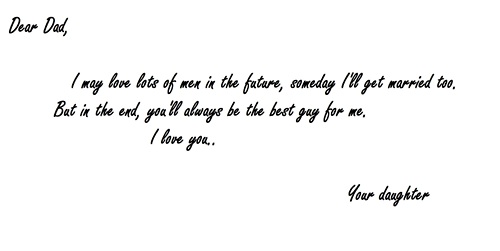 Dear Dad,
I may love lots of men in the future, someday I'll get married too.
But in the end, you'll always be the best guy for me.
I love you..
Your daughter